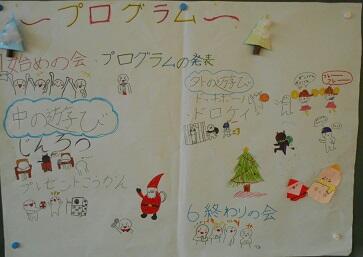 〜プログラム〜
1始めの会・プログラムの発表
中の遊び
じんろう
プレゼントこうかん
外の遊び
ドッチボール
・ドロケイ
6終わりの会